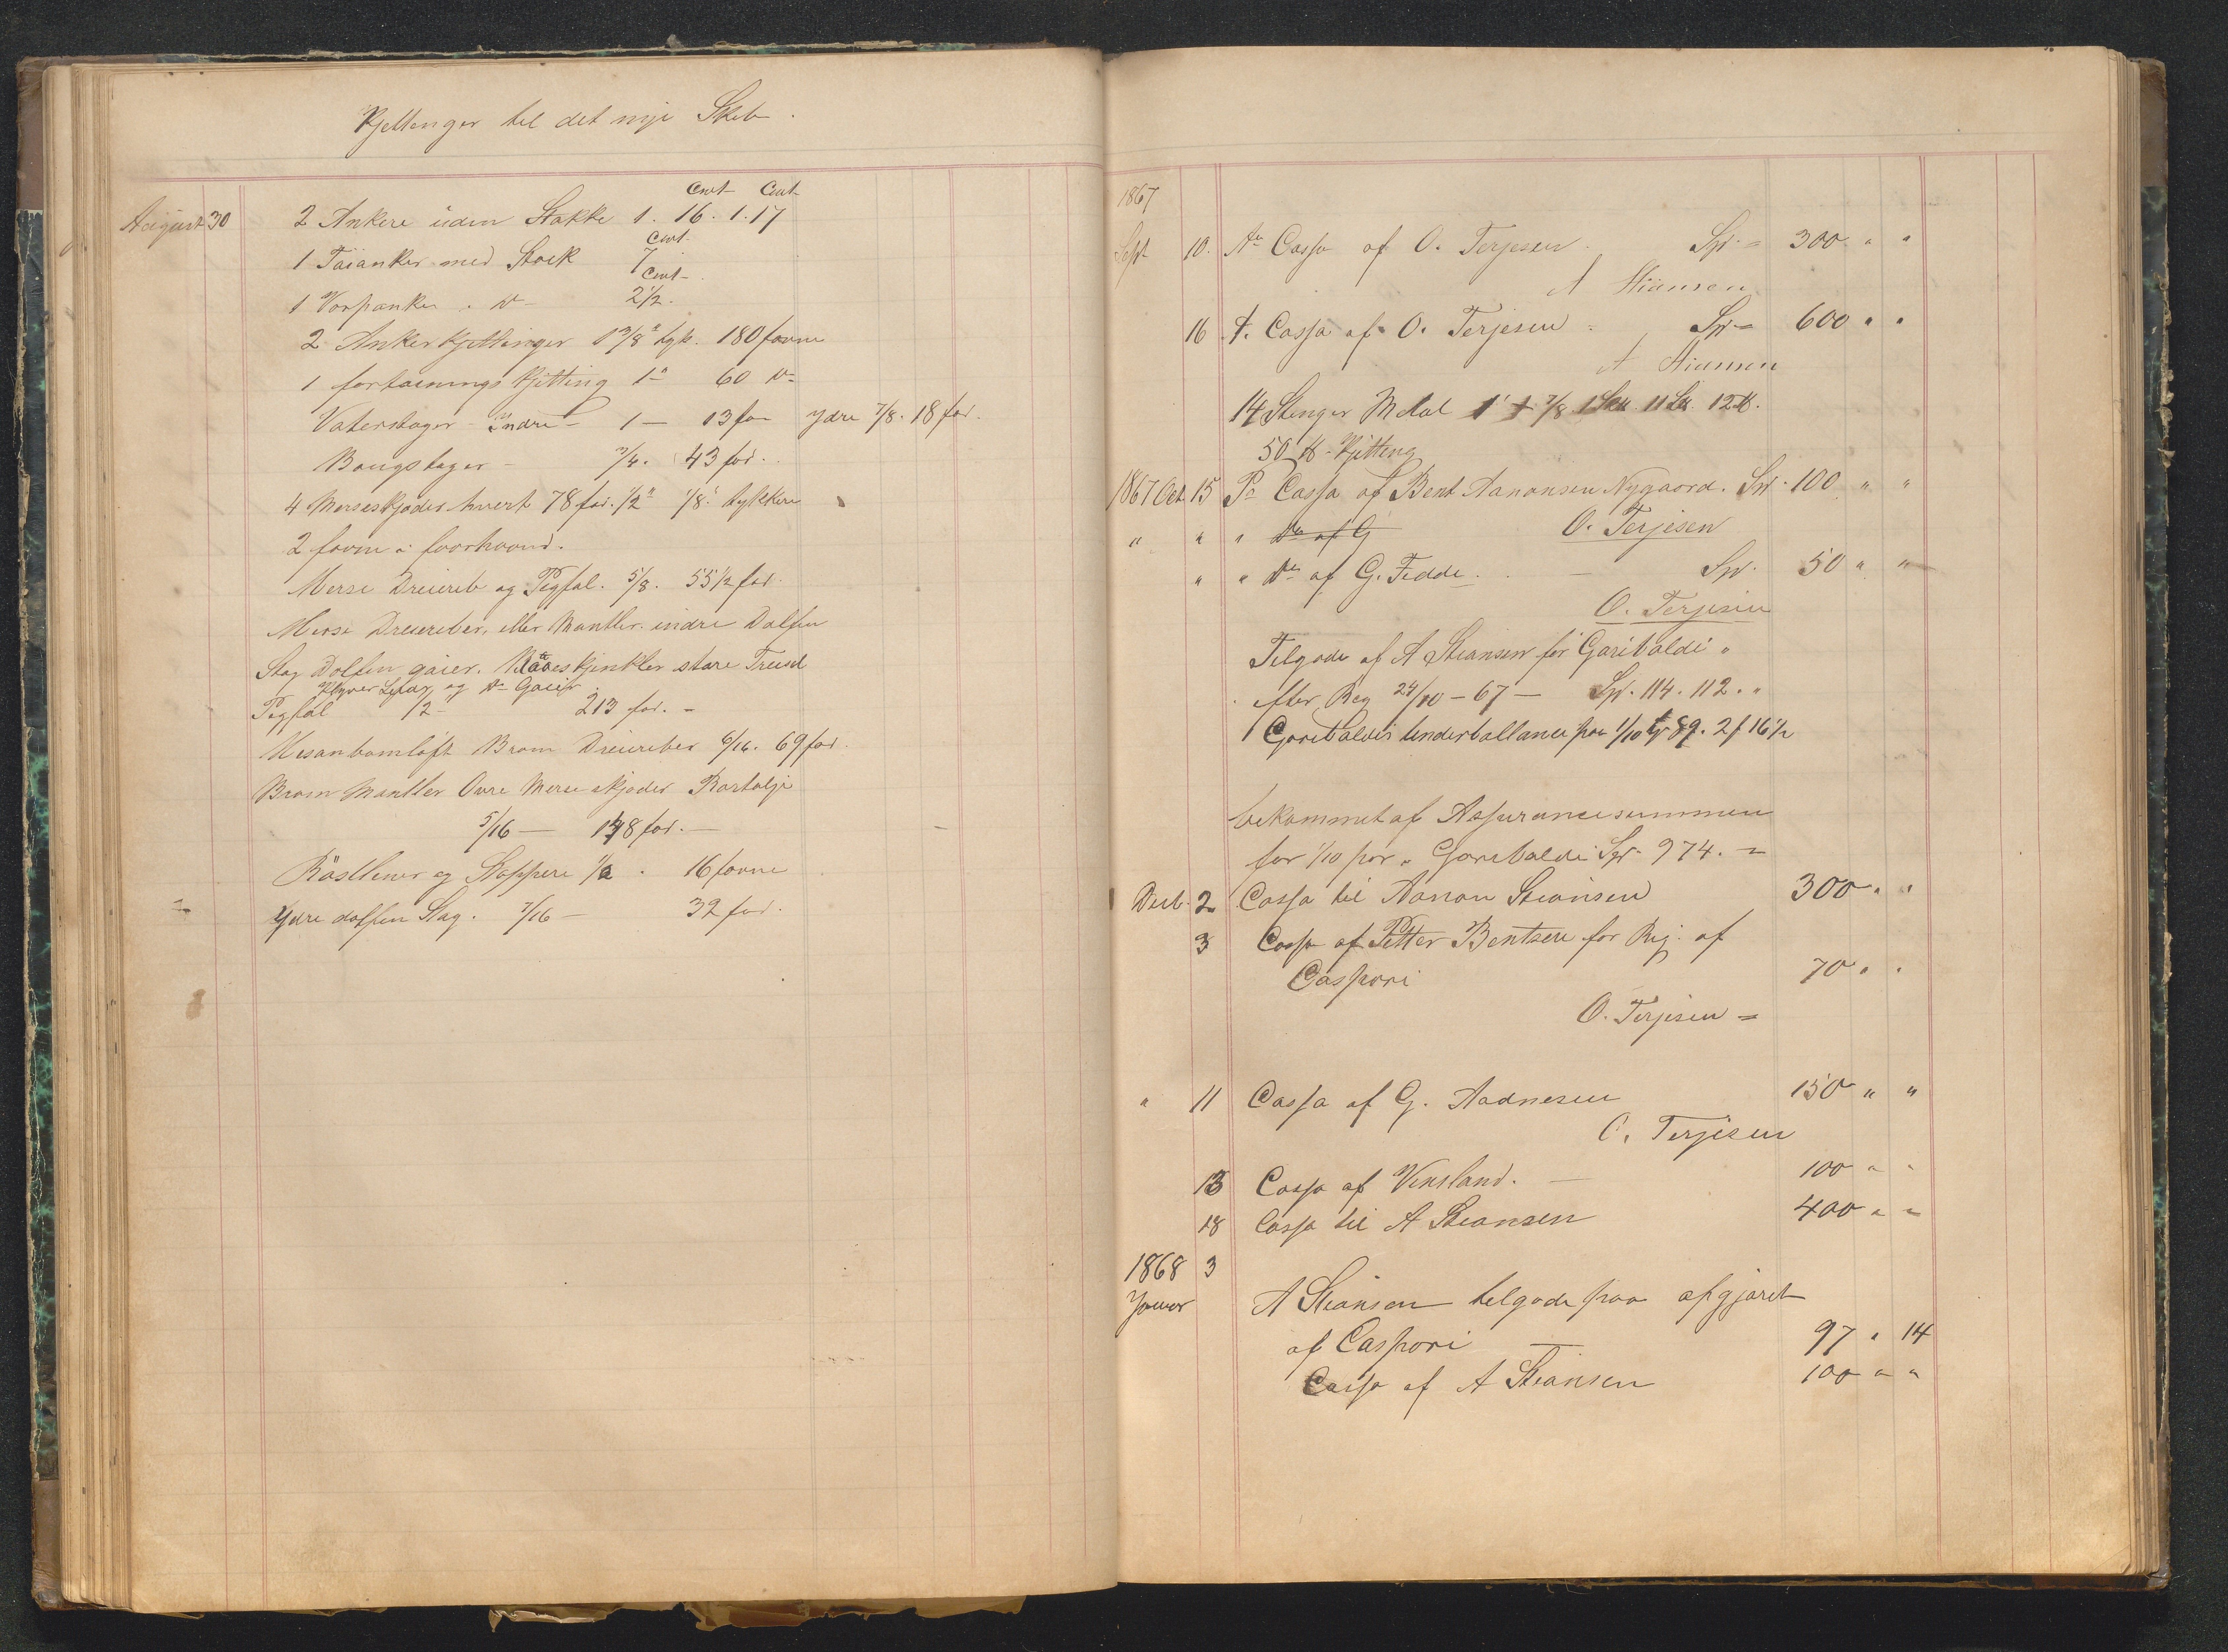 Kjettenger til det nye Skib.
Cwt Cwt
August 30 2 Ankere uden Stokke 1. 16. 1. 17
Cwt.
1 Tøianker med Stock 7
Cwt
1 Varpanker " Do 2 1/2.
2 Ankerkjettinger 1 3/8" tyk. 180 favne
1 fortøinings Kjitting 1" 60 Do
Vaterstager Indre 1 — 13 fo Ydre 7/8. 18 fod.
Bougstager 3/4. 43 fod.
4 Merseskjøder hvert 78 fod. 1/2" 1/8" tykkere
2 favne i foorhaand.
Merse Dreiereb og Pigfal. 5/8. 55 1/2 fod.
Merse Dreiereber, eller Mantler. indre Dolfin
Stag Dolfin gaier. store
Klyver og Do Gaier
Pigfal 1/2 213 fod.
Mesanbomløft Bram Dreiereber 6/16. 69 fod.
Bram Mantler Øvre Merse skjøder
5/16 — 148 fod. —
og Stoppere 1/2. 16 favne
Ydre dolfin Stag. 7/16 — 32 fod.
1867
Sept 10. Cassa af O. Terjesen. Spd. 300 " "
A Stiansen
16 Cassa af O. Terjesen Spd. 600 " "
A Stiansen
14 Stenger Metal 1" 7/8 11 12 ℔.
50 ℔ Kjitting
1867 Oct 15 Pr Cassa af Bent Aanonsen Nygaard. Spd. 100 " "
" " " Do af G O. Terjesen
" " Do af G. Fedde. — Spd. 50 " "
O. Terjesen
Tilgode af A Stiansen for Garibaldi "
efter Reg 24/10 - 67 — Spd. 114. 112. "
Garibaldis Underballance paa 1/10 89. 2 f 16 1/2
bekommet af Assurancesummen
for 1/10 par. Garibaldi Spd. 974.
Decb. 2 Cassa til Aanon Stiansen 300 " "
3 Cassa af Petter Bentsen for Reg. af
Caspari 70 " "
O. Terjesen
" 11 Cassa af G. Aadnesen 150 " "
O. Terjesen
13 Cassa af Vensland. — 100 " "
18 Cassa til A Stiansen 400 " "
1868 3
Januar A Stiansen tilgode paa opgjøret
af Caspari — 97 " 14
Cassa af A Stiansen 100 " "